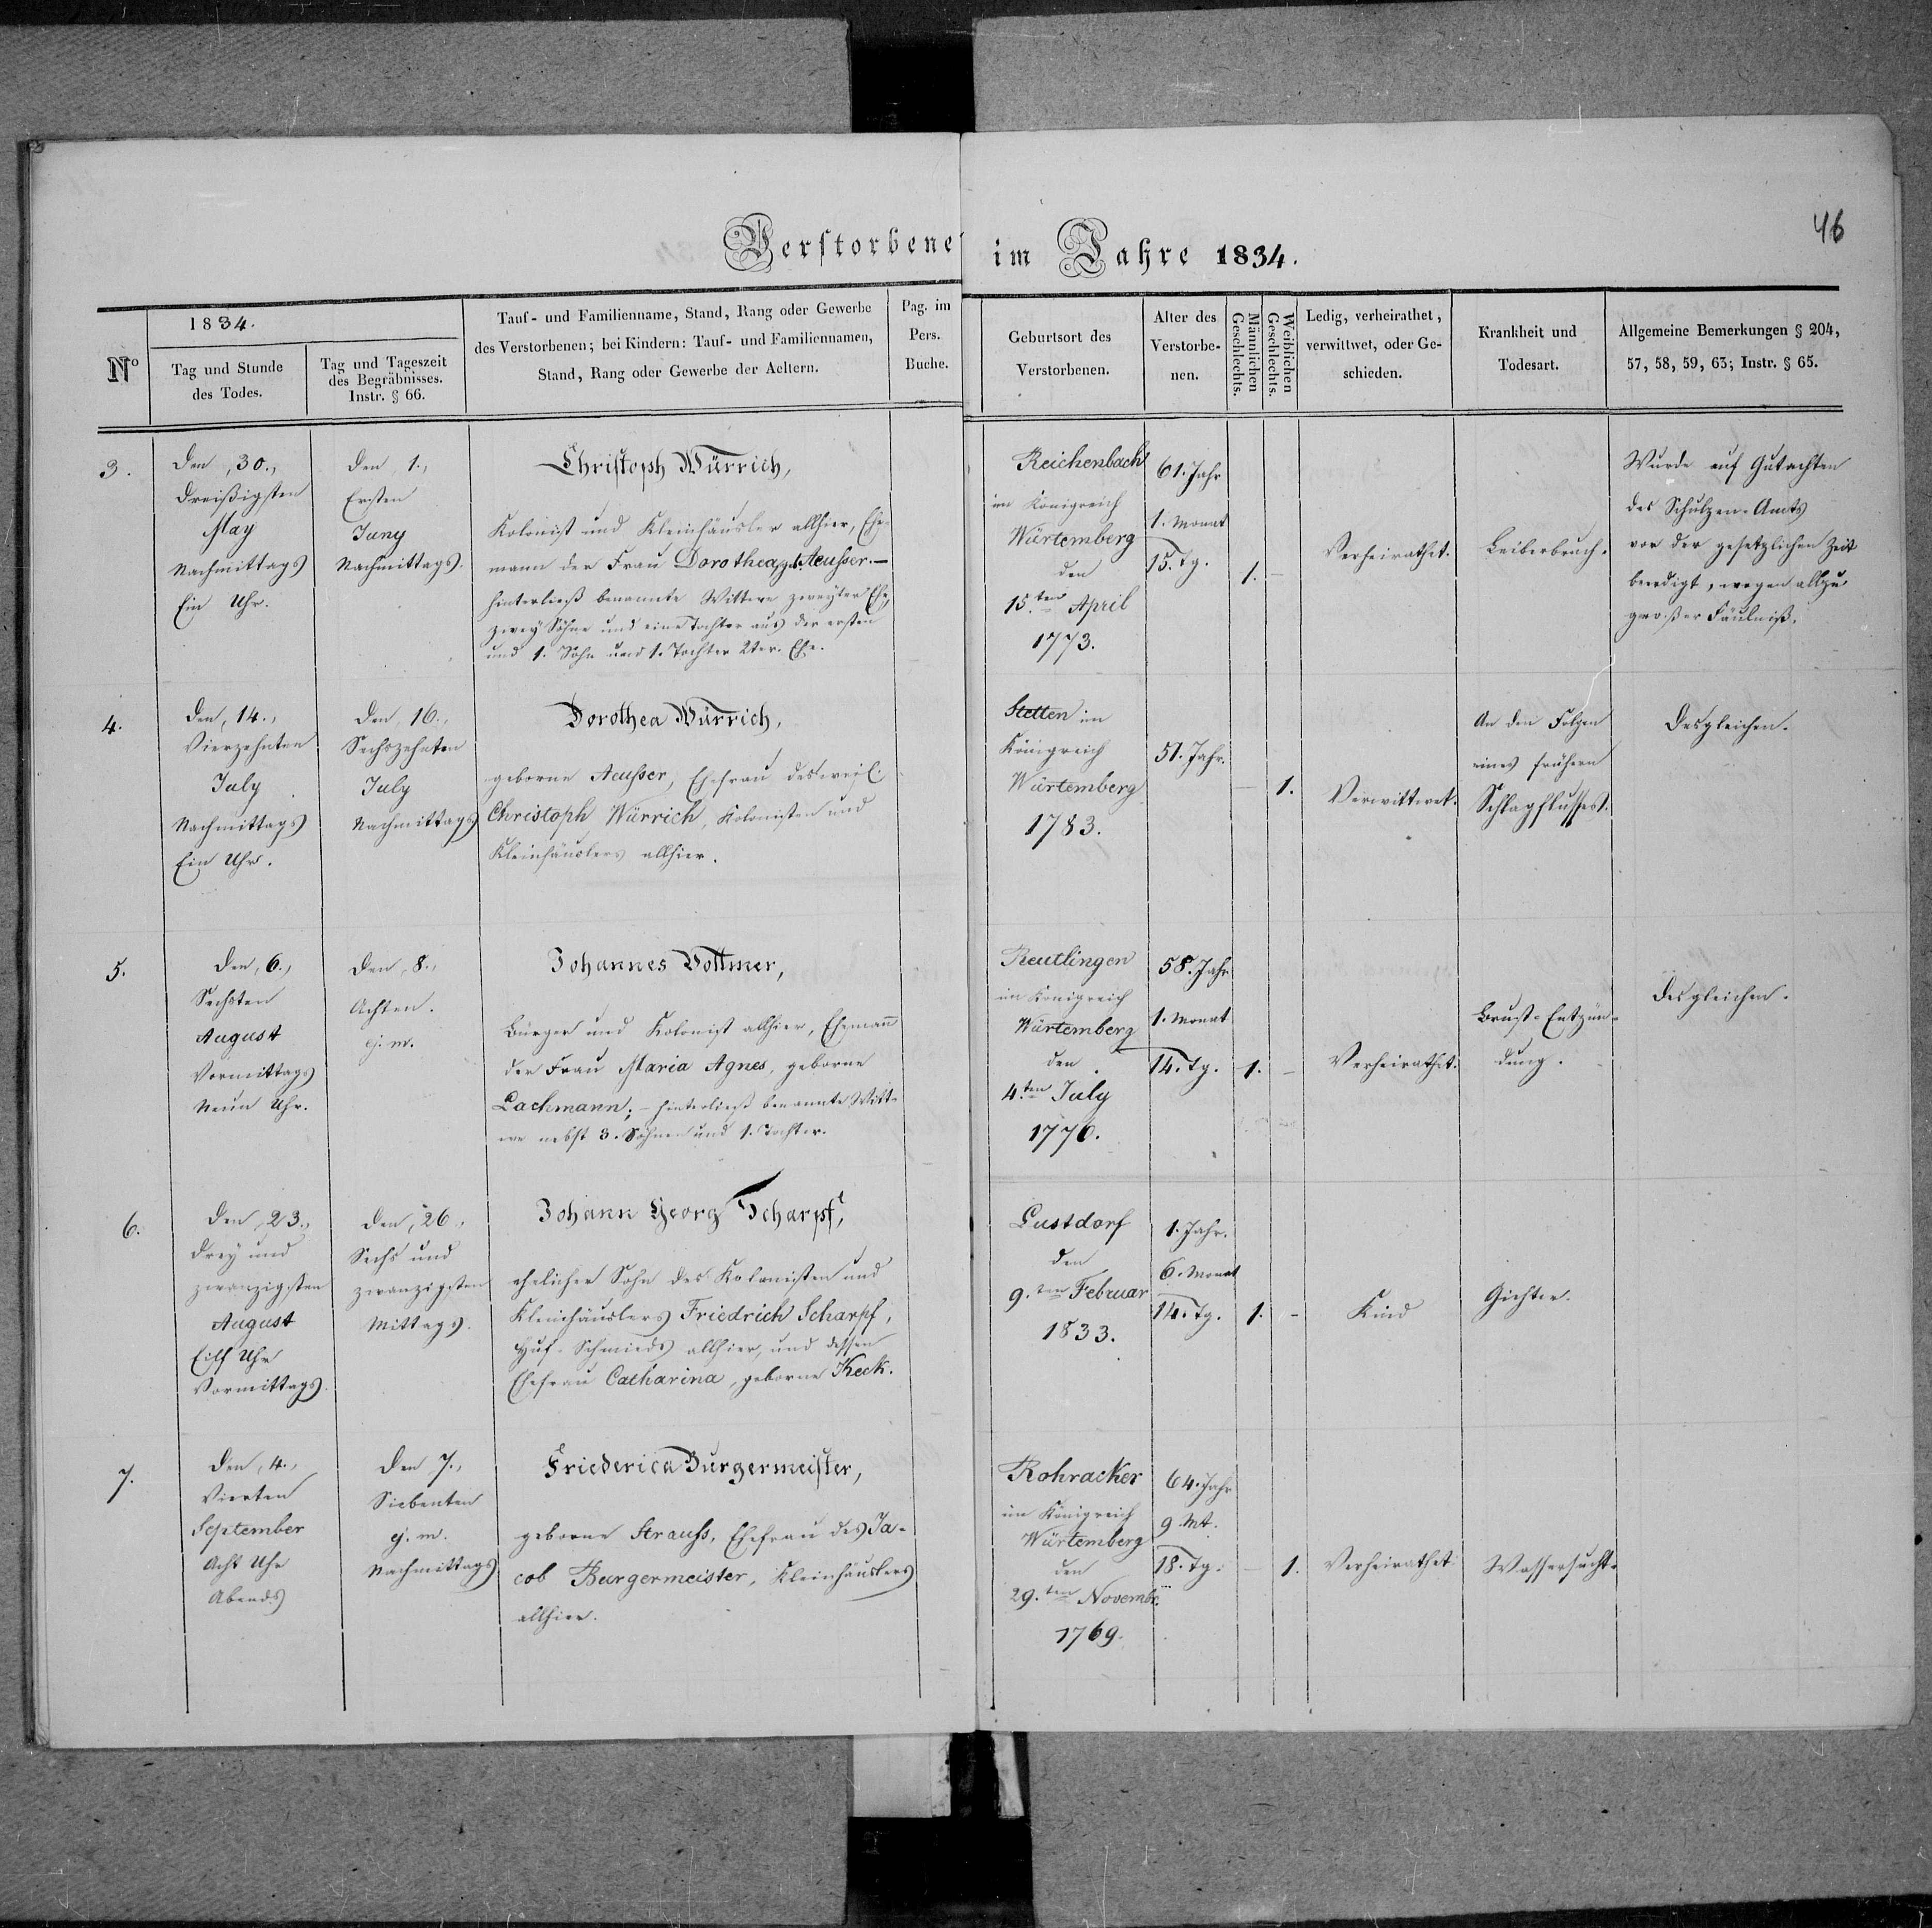 46
Verstorbene im Jahre 1834.
Nº
1834.
Tag und Stunde
des Todes.
Tag und Tageszeit
des Begräbnisses.
Instr. § 66.
Tauf- und Familienname, Stand, Rang oder Gewerbe
des Verstorbenen; bei Kindern: Tauf- und Familiennamen,
Stand, Rang oder Gewerbe der Aeltern.
Pag. im
Pers.
Buche.
Geburtsort des
Verstorbenen.
Alter des
Verstorbe-
nen.
Männlichen
Geschlechts.
Weiblichen
Geschlechts.
Ledig, verheirathet,
verwittwet, oder Ge-
schieden.
Krankheit und
Todesart.
Allgemeine Bemerkungen § 204,
57, 58, 59, 63; Instr. § 65.
3.
Den, 30.,
Dreißigsten
May
Nachmittags
Ein Uhr.
Den, 1.,
Ersten
Juny
Nachmittags.
Christoph Würrich,
Kolonist und Kleinhäusler allhier, Ehe-
mann der Frau Dorothea, geb. Aeusser.—
hinterließ benannte Wittwe zweyter Ehe,
zwey Söhne und eine Tochter aus der ersten
und 1. Sohn und 1. Tochter 2ter. Ehe.
Reichenbach
im Königreich
Würtemberg
den
15.ten April
1773.
61. Jahr
1. Monat
15. Tg.
1.
-
Verheirathet.
Leiberbruch.
Wurde auf Gutachten
des Schulzen-Amts
vor der gesetzlichen Zeit
beerdigt, wegen allzu
großer Fäulniß.
4.
Den, 14.,
Vierzehnten
July
Nachmittags
Ein Uhr.
Den, 16.,
Sechszehnten
July
Nachmittags
Dorothea Würrich,
geborne Aeusser, Ehefrau des weil.
Christoph Würrich, Kolonisten und
Kleinhäuslers allhier.
Stetten im
Königreich
Würtemberg
1783.
51. Jahr.
-
1.
Verwittwet.
An den Folgen
eines frühern
Schlagflusses.
Desgleichen.
5.
Den, 6.,
Sechsten
August
Vormittags
Neun Uhr.
Den, 8.,
Achten.
ej. m.
Johannes Vottmer,
Bürger und Kolonist allhier, Ehemann
der Frau Maria Agnes, geborne
Lachmann; - hinterließ benannte Witt-
we nebst 3. Söhnen und 1. Tochter.
Reutlingen
im Königreich
Würtemberg
den
4.ten July
1776.
58. Jahr
1. Monat
14. Tg.
1.
-
Verheirathet.
Brust-Entzün-
dung.
Desgleichen.
6.
Den, 23.,
Drey und
zwanzigsten
August
Eilf Uhr
Vormittags.
Den, 26.,
Sechs und
zwanzigsten
Mittags.
Johann Georg Scharpf,
ehelicher Sohn des Kolonisten und
Kleinhäuslers Friedrich Scharpf,
Huf-Schmieds allhier, und dessen
Ehefrau Catharina, geborne Keck.
Lustdorf
den
9.ten Februar
1833.
1. Jahr.
6. Monat
14. Tg.
1.
-
Kind
Gichter.
7.
Den, 4.,
Vierten
September
Acht Uhr
Abends
Den 7.,
Siebenten
ej. m.
Nachmittags
Friederica Burgermeister,
geborne Strauss, Ehefrau des Ja-
cob Burgermeister, Kleinhäuslers
allhier.
Rohracker
im Königreich
Würtemberg
den
29.ten Novembr.
1769.
64. Jahr
9. Mt.
18. Tg.
-
1.
Verheirathet
Wassersucht.